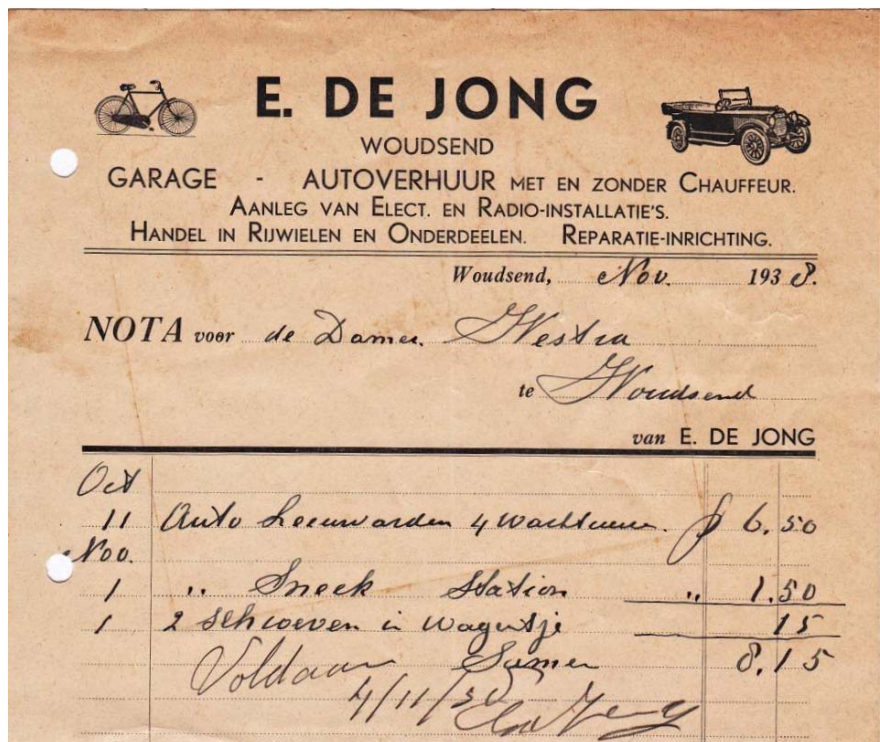 E. DE JONG
WOUDSEND
GARAGE - AUTOVERHUUR MET EN ZONDER CHAUFFEUR.
AANLEG VAN ELECT. EN RADIO-INSTALLATIE'S.
HANDEL IN RIJWIELEN EN ONDERDEELEN. REPARATIE-INRICHTING.
Woudsend, Nov. 1938.
NOTA voor de Dames Westra
te Woudsend
van E. DE JONG
Oct
11 Auto Leeuwarden 4 wachturen. f 6.50
Nov.
1 " Sneek Station " 1.50
1 2 schroeven in wagentje 15
Samen 8.15
Voldaan
4/11/38